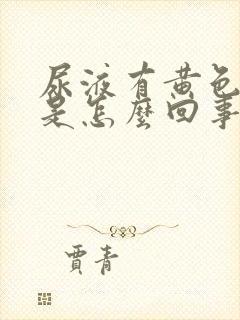 尿液有黄色
是怎麼回事
賈青